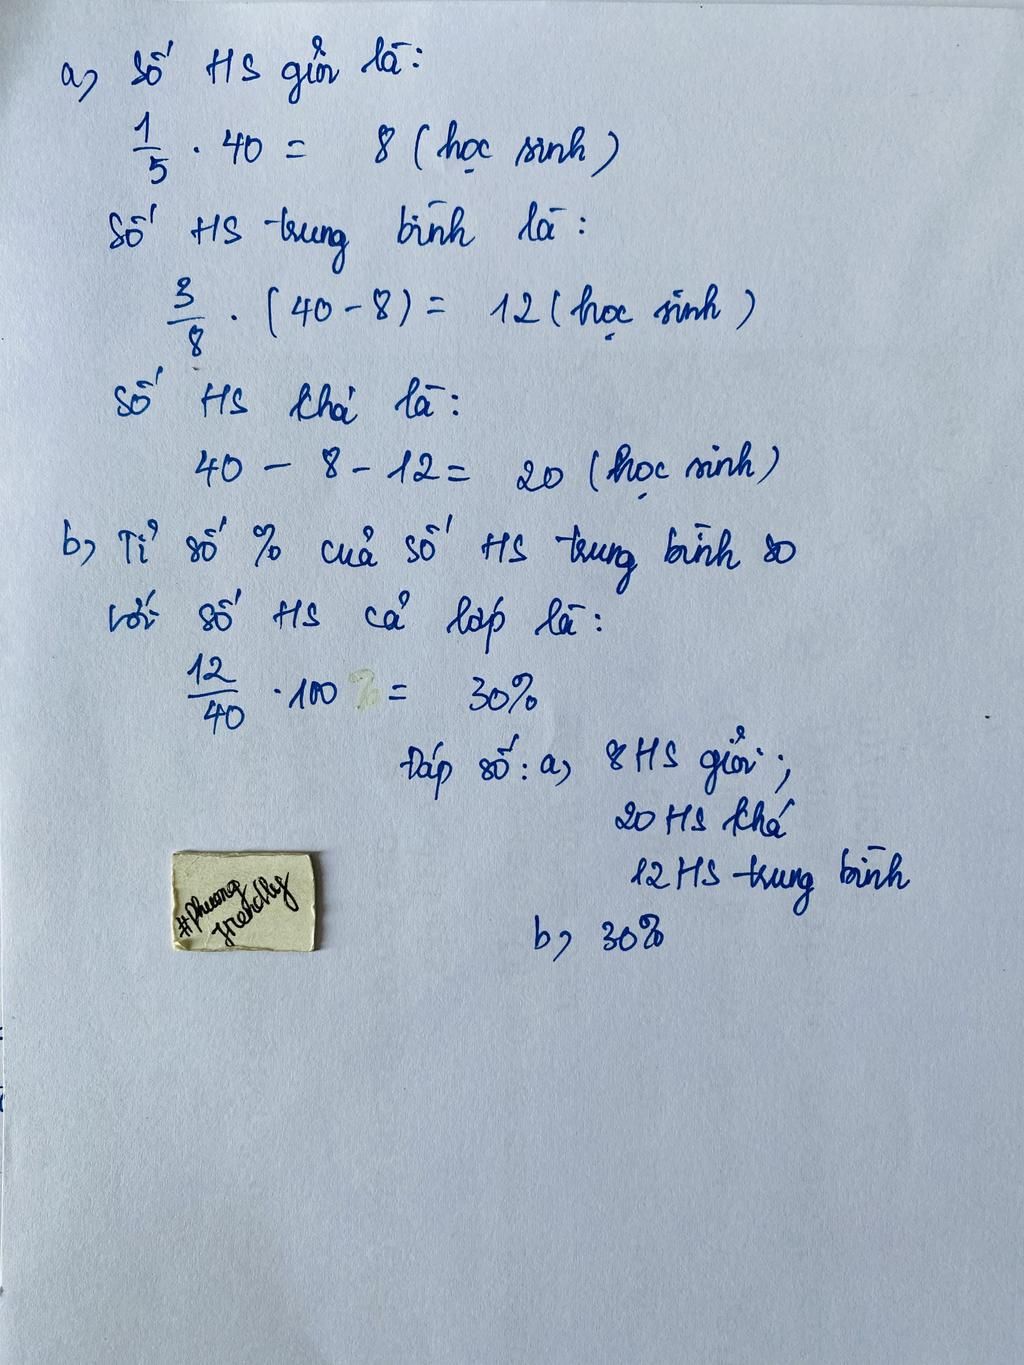 a, Số HS giỏi là:
1/5 . 40 = 8 (học sinh)
Số HS trung bình là:
3/8 . (40 - 8) = 12 (học sinh)
Số HS khá là:
40 - 8 - 12 = 20 (học sinh)
b, Tỉ số % của số HS trung bình so
với số HS cả lớp là:
12/40 . 100 % = 30%
Đáp số: a, 8 HS giỏi;
20 HS khá
12 HS trung bình
b, 30%
#Phuong
friendly